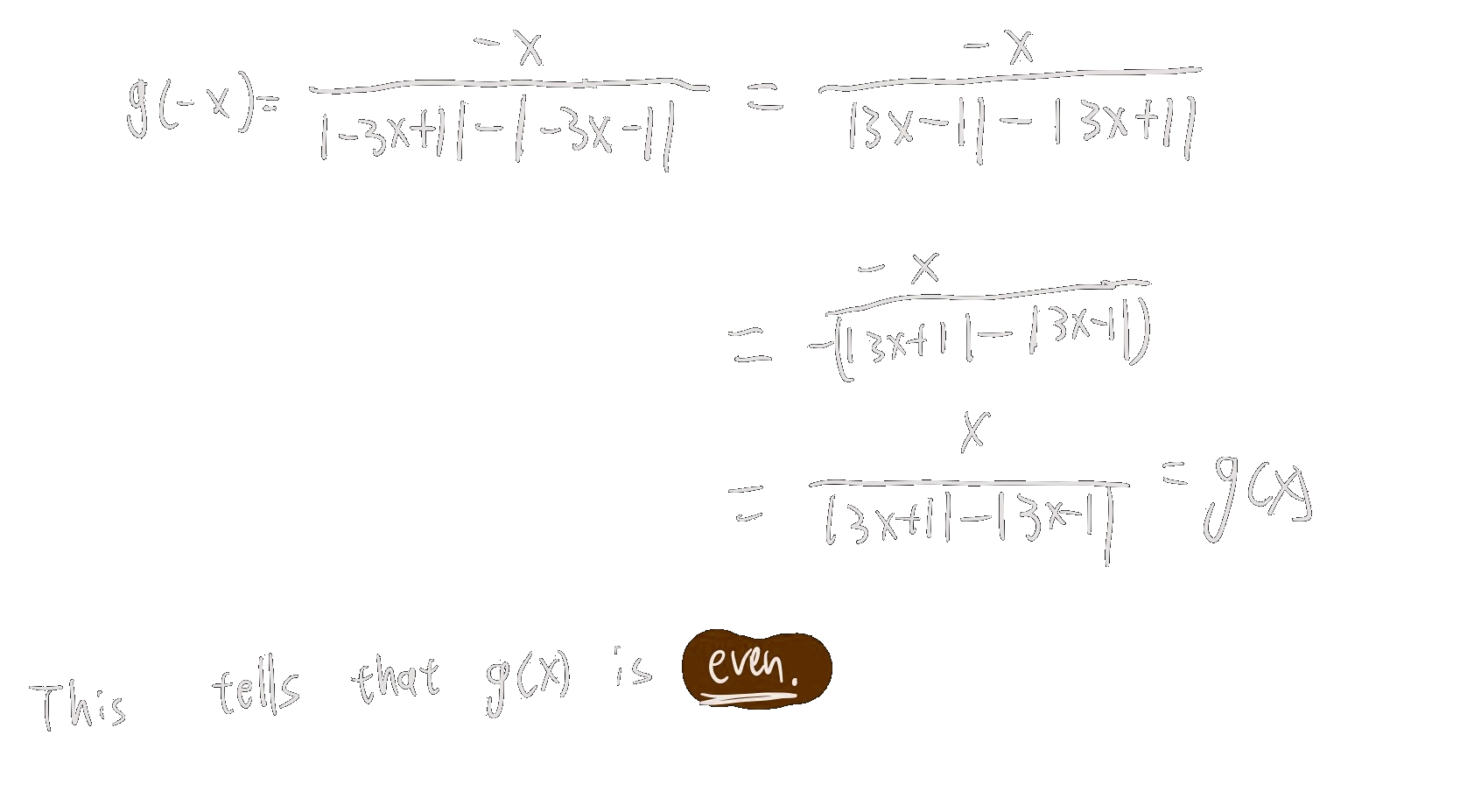 g(-x) = -x / (|-3x+1| - |-3x-1|) = -x / (|3x-1| - |3x+1|)
= -x / -(|3x+1| - |3x-1|)
= x / (|3x+1| - |3x-1|) = g(x)
This tells that g(x) is even.